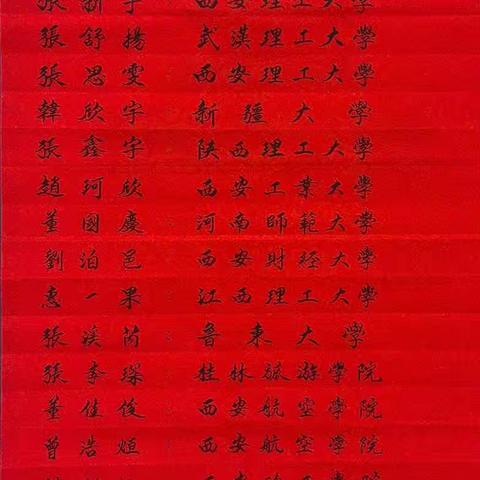 張 新 宇 西安理工大學
張舒揚 武漢理工大學
張思雯 西安理工大學
韓欣宇 新疆大學
張鑫宇 陝西理工大學
趙珂欣 西安工業大學
董國慶 河南師範大學
劉泊邑 西安財經大學
惠一果 江西理工大學
張溪芮 魯東大學
張李琛 桂林旅遊學院
董佳俊 西安航空學院
曾浩烜 西安航空學院